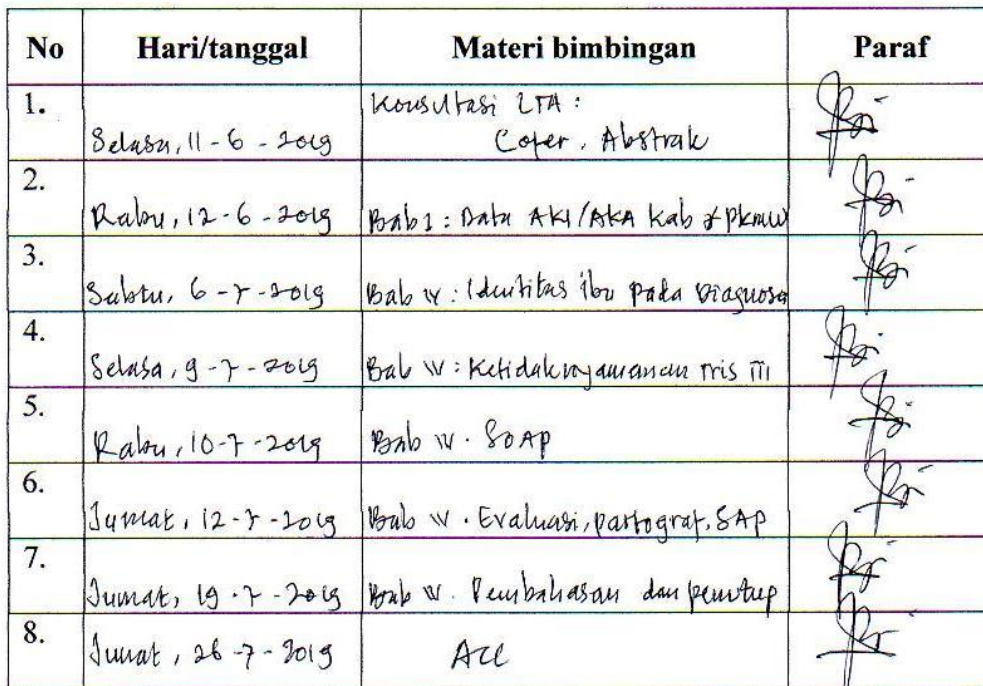 No Hari/tanggal Materi bimbingan Paraf
1. Konsultasi LTA :
Selasa, 11-6-2019 Cofer, Abstrak
2.
Rabu, 12-6-2019 Bab I : Data AKI/AKA Kab & PKMW
3.
Sabtu, 6-7-2019 Bab IV : Identitas ibu pada Diagnosa
4.
Selasa, 9-7-2019 Bab IV : Ketidaknyamanan Tris III
5.
Rabu, 10-7-2019 Bab IV. SOAP
6.
Jumat, 12-7-2019 Bab IV. Evaluasi, partograf, SAP
7.
Jumat, 19-7-2019 Bab IV. Pembahasan dan penutup
8.
Jumat, 26-7-2019 ACC